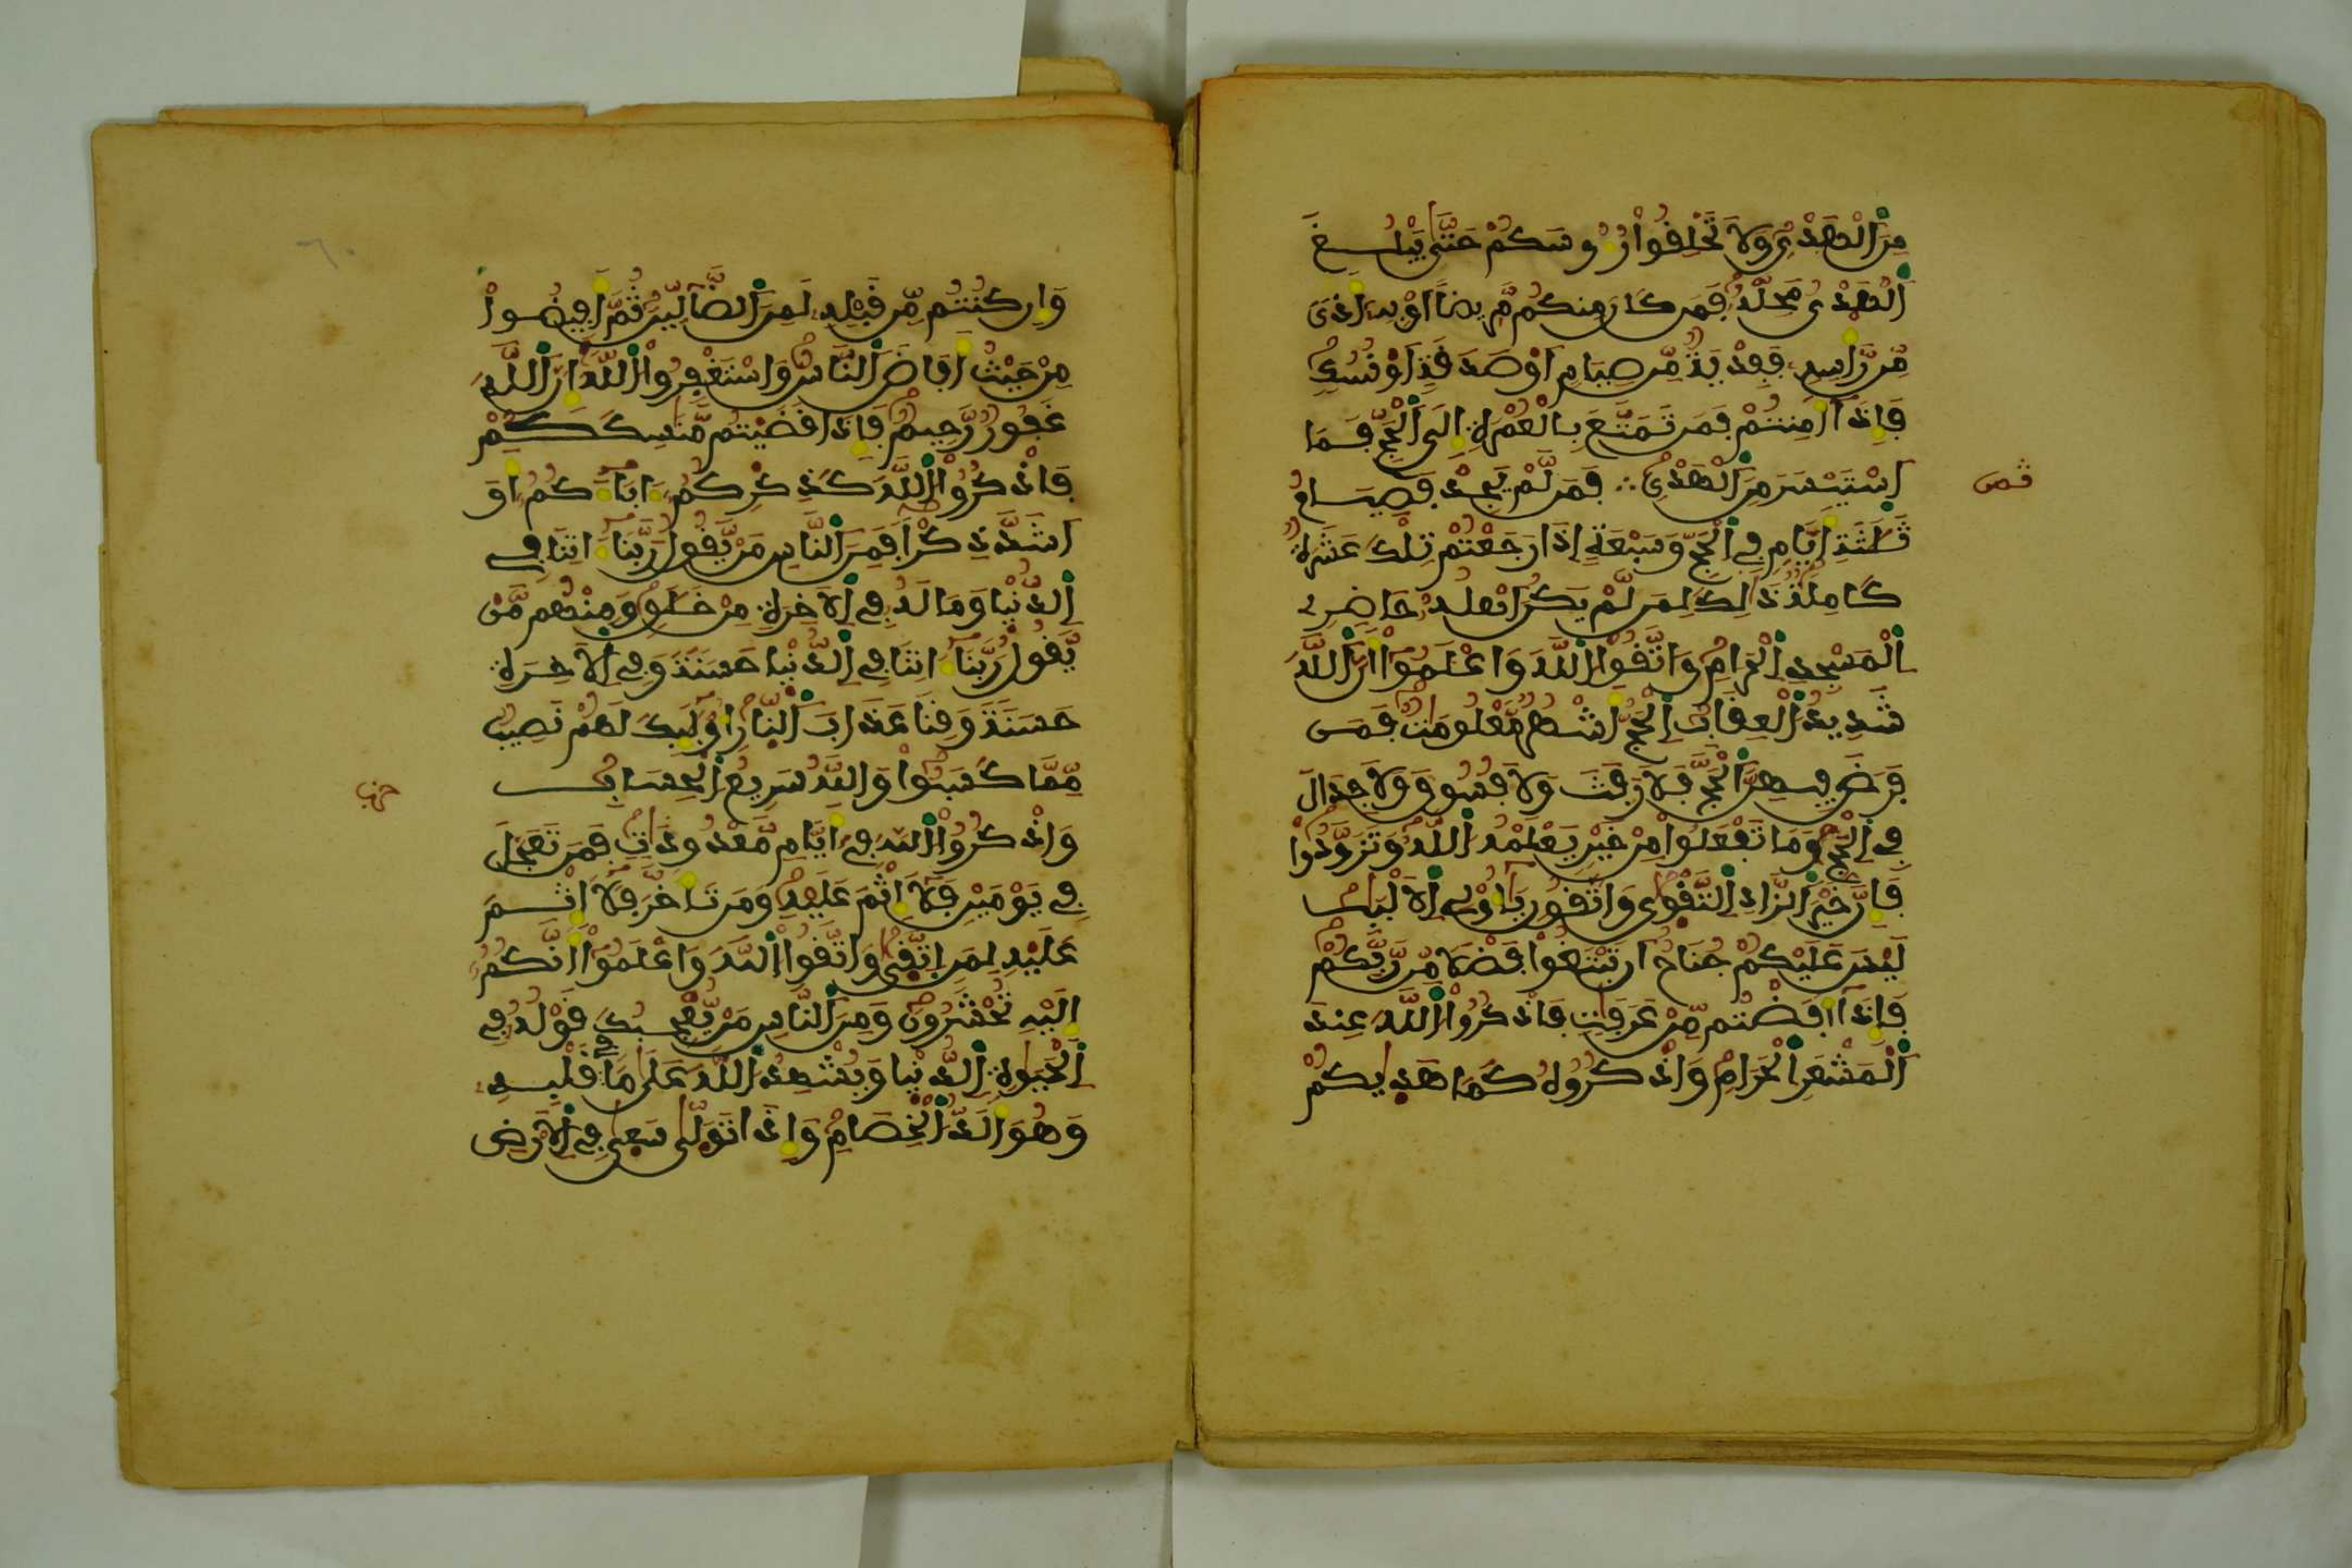 مِنَ اَلْهَدْيِ وَلَا تَحْلِفُواْ رُءُوسَكُمْ حَتَّىٰ يَبْلُغَ
اَلْهَدْىُ مَحِلَّهُ فَمَن كَانَ مِنكُم مَّرِيضاً اَوْ بِهِ أَذىً
مِّن رَّأْسِهِ فَفِدْيَةٌ مِّن صِيَامٍ اَوْ صَدَقَةٍ اَوْ نُسُكٍ
فَإِذَا أَمِنتُمْ فَمَن تَمَتَّعَ بِالْعُمْرَةِ إِلَى اَلْحَجِّ فَمَا
اَسْتَيْسَرَ مِنَ اَلْهَدْيِ ∴ فَمَن لَّمْ يَجِدْ فَصِيَامُ
ثمن
ثَلَٰثَةِ أَيَّامٍ فِي اِلْحَجِّ وَسَبْعَةٍ إِذَا رَجَعْتُمْ تِلْكَ عَشَرَةٌ
كَامِلَةٌ ذَٰلِكَ لِمَن لَّمْ يَكُنَ اَهْلُهُ حَاضِرِي
اِلْمَسْجِدِ اِلْحَرَامِ وَاتَّقُواْ اُللَّهَ وَاعْلَمُواْ أَنَّ اَللَّهَ
شَدِيدُ اُلْعِقَابِ اِلْحَجُّ أَشْهُرٌ مَّعْلُومَٰتٌ فَمَن
فَرَضَ فِيهِنَّ اَلْحَجَّ فَلَا رَفَثَ وَلَا فُسُوقَ وَلَا جِدَالَ
فِي اِلْحَجِّ وَمَا تَفْعَلُواْ مِنْ خَيْرٍ يَعْلَمْهُ اُللَّهُ وَتَزَوَّدُواْ
فَإِنَّ خَيْرَ اَلزَّادِ اِلتَّقْوَىٰ وَاتَّقُونِ يَٰأُوْلِي اِلَالْبَٰبِ
لَيْسَ عَلَيْكُمْ جُنَاحٌ أَن تَبْتَغُواْ فَضْلًا مِّن رَّبِّكُمْ
فَإِذَا أَفَضْتُم مِّنْ عَرَفَٰتٍ فَاذْكُرُواْ اُللَّهَ عِندَ
اَلْمَشْعَرِ اِلْحَرَامِ وَاذْكُرُوهُ كَمَا هَدَىٰكُمْ
٦٠
وَإِن كُنتُم مِّن قَبْلِهِ لَمِنَ اَلضَّآلِّينَ ثُمَّ أَفِيضُواْ
مِنْ حَيْثُ أَفَاضَ اَلنَّاسُ وَاسْتَغْفِرُواْ اُللَّهَ إِنَّ اَللَّهَ
غَفُورٌ رَّحِيمٌ فَإِذَا قَضَيْتُم مَّنَٰسِكَكُمْ
فَاذْكُرُواْ اُللَّهَ كَذِكْرِكُمُ ءَابَآءَكُمُ أَوَ
اَشَدَّ ذِكْراً فَمِنَ اَلنَّاسِ مَنْ يَّقُولُ رَبَّنَا ءَاتِنَا فِي
اِلدُّنْيَا وَمَا لَهُ فِي اِلَاخِرَةِ مِنْ خَلَٰقٍ وَمِنْهُم مَّنْ
يَّقُولُ رَبَّنَا ءَاتِنَا فِي اِلدُّنْيَا حَسَنَةً وَفِي اِلَاخِرَةِ
حَسَنَةً وَقِنَا عَذَابَ اَلنَّارِ أُوْلَٰئِكَ لَهُمْ نَصِيبٌ
مِّمَّا كَسَبُواْ وَاللَّهُ سَرِيعُ اُلْحِسَابِ
حزب
وَاذْكُرُواْ اُللَّهَ فِي أَيَّامٍ مَّعْدُودَٰتٍ فَمَن تَعَجَّلَ
فِي يَوْمَيْنِ فَلَا إِثْمَ عَلَيْهِ وَمَن تَأَخَّرَ فَلَا إِثْمَ
عَلَيْهِ لِمَنِ اِتَّقَىٰ وَاتَّقُواْ اُللَّهَ وَاعْلَمُواْ أَنَّكُمُ
إِلَيْهِ تُحْشَرُونَ وَمِنَ اَلنَّاسِ مَنْ يُّعْجِبُكَ قَوْلُهُ فِي
اِلْحَيَوٰةِ اِلدُّنْيَا وَيُشْهِدُ اُللَّهَ عَلَىٰ مَا فِي قَلْبِهِ
وَهُوَ أَلَدُّ اُلْخِصَامِ وَإِذَا تَوَلَّىٰ سَعَىٰ فِي اِلَارْضِ